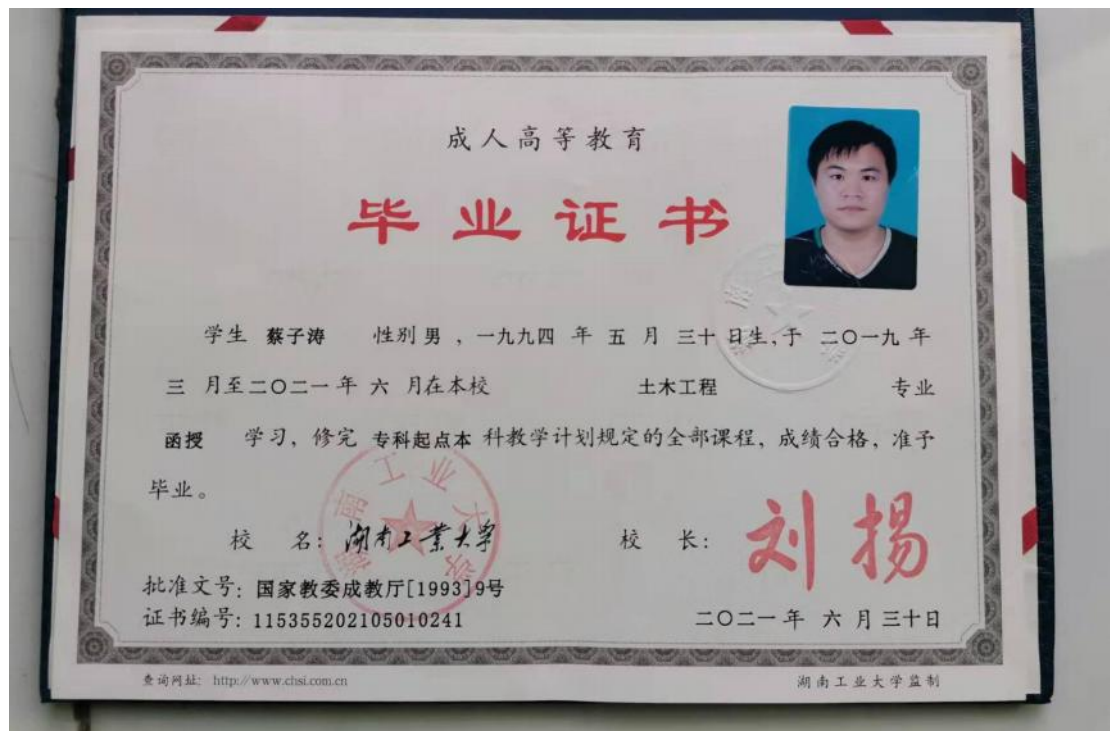 成人高等教育
毕业证书
学生 蔡子涛 性别 男 ，一九九四 年 五 月 三十 日生，于 二〇一九 年
三 月至 二〇二一 年 六 月在本校 土木工程 专业
函授 学习，修完 专科起点本 科教学计划规定的全部课程，成绩合格，准予
毕业。
校 名：湖南工業大学 校 长：刘扬
批准文号：国家教委成教厅[1993]9号
证书编号：115355202105010241 二〇二一 年 六 月 三十日
查询网址：http://www.chsi.com.cn 湖南工业大学监制
湖南工业大学